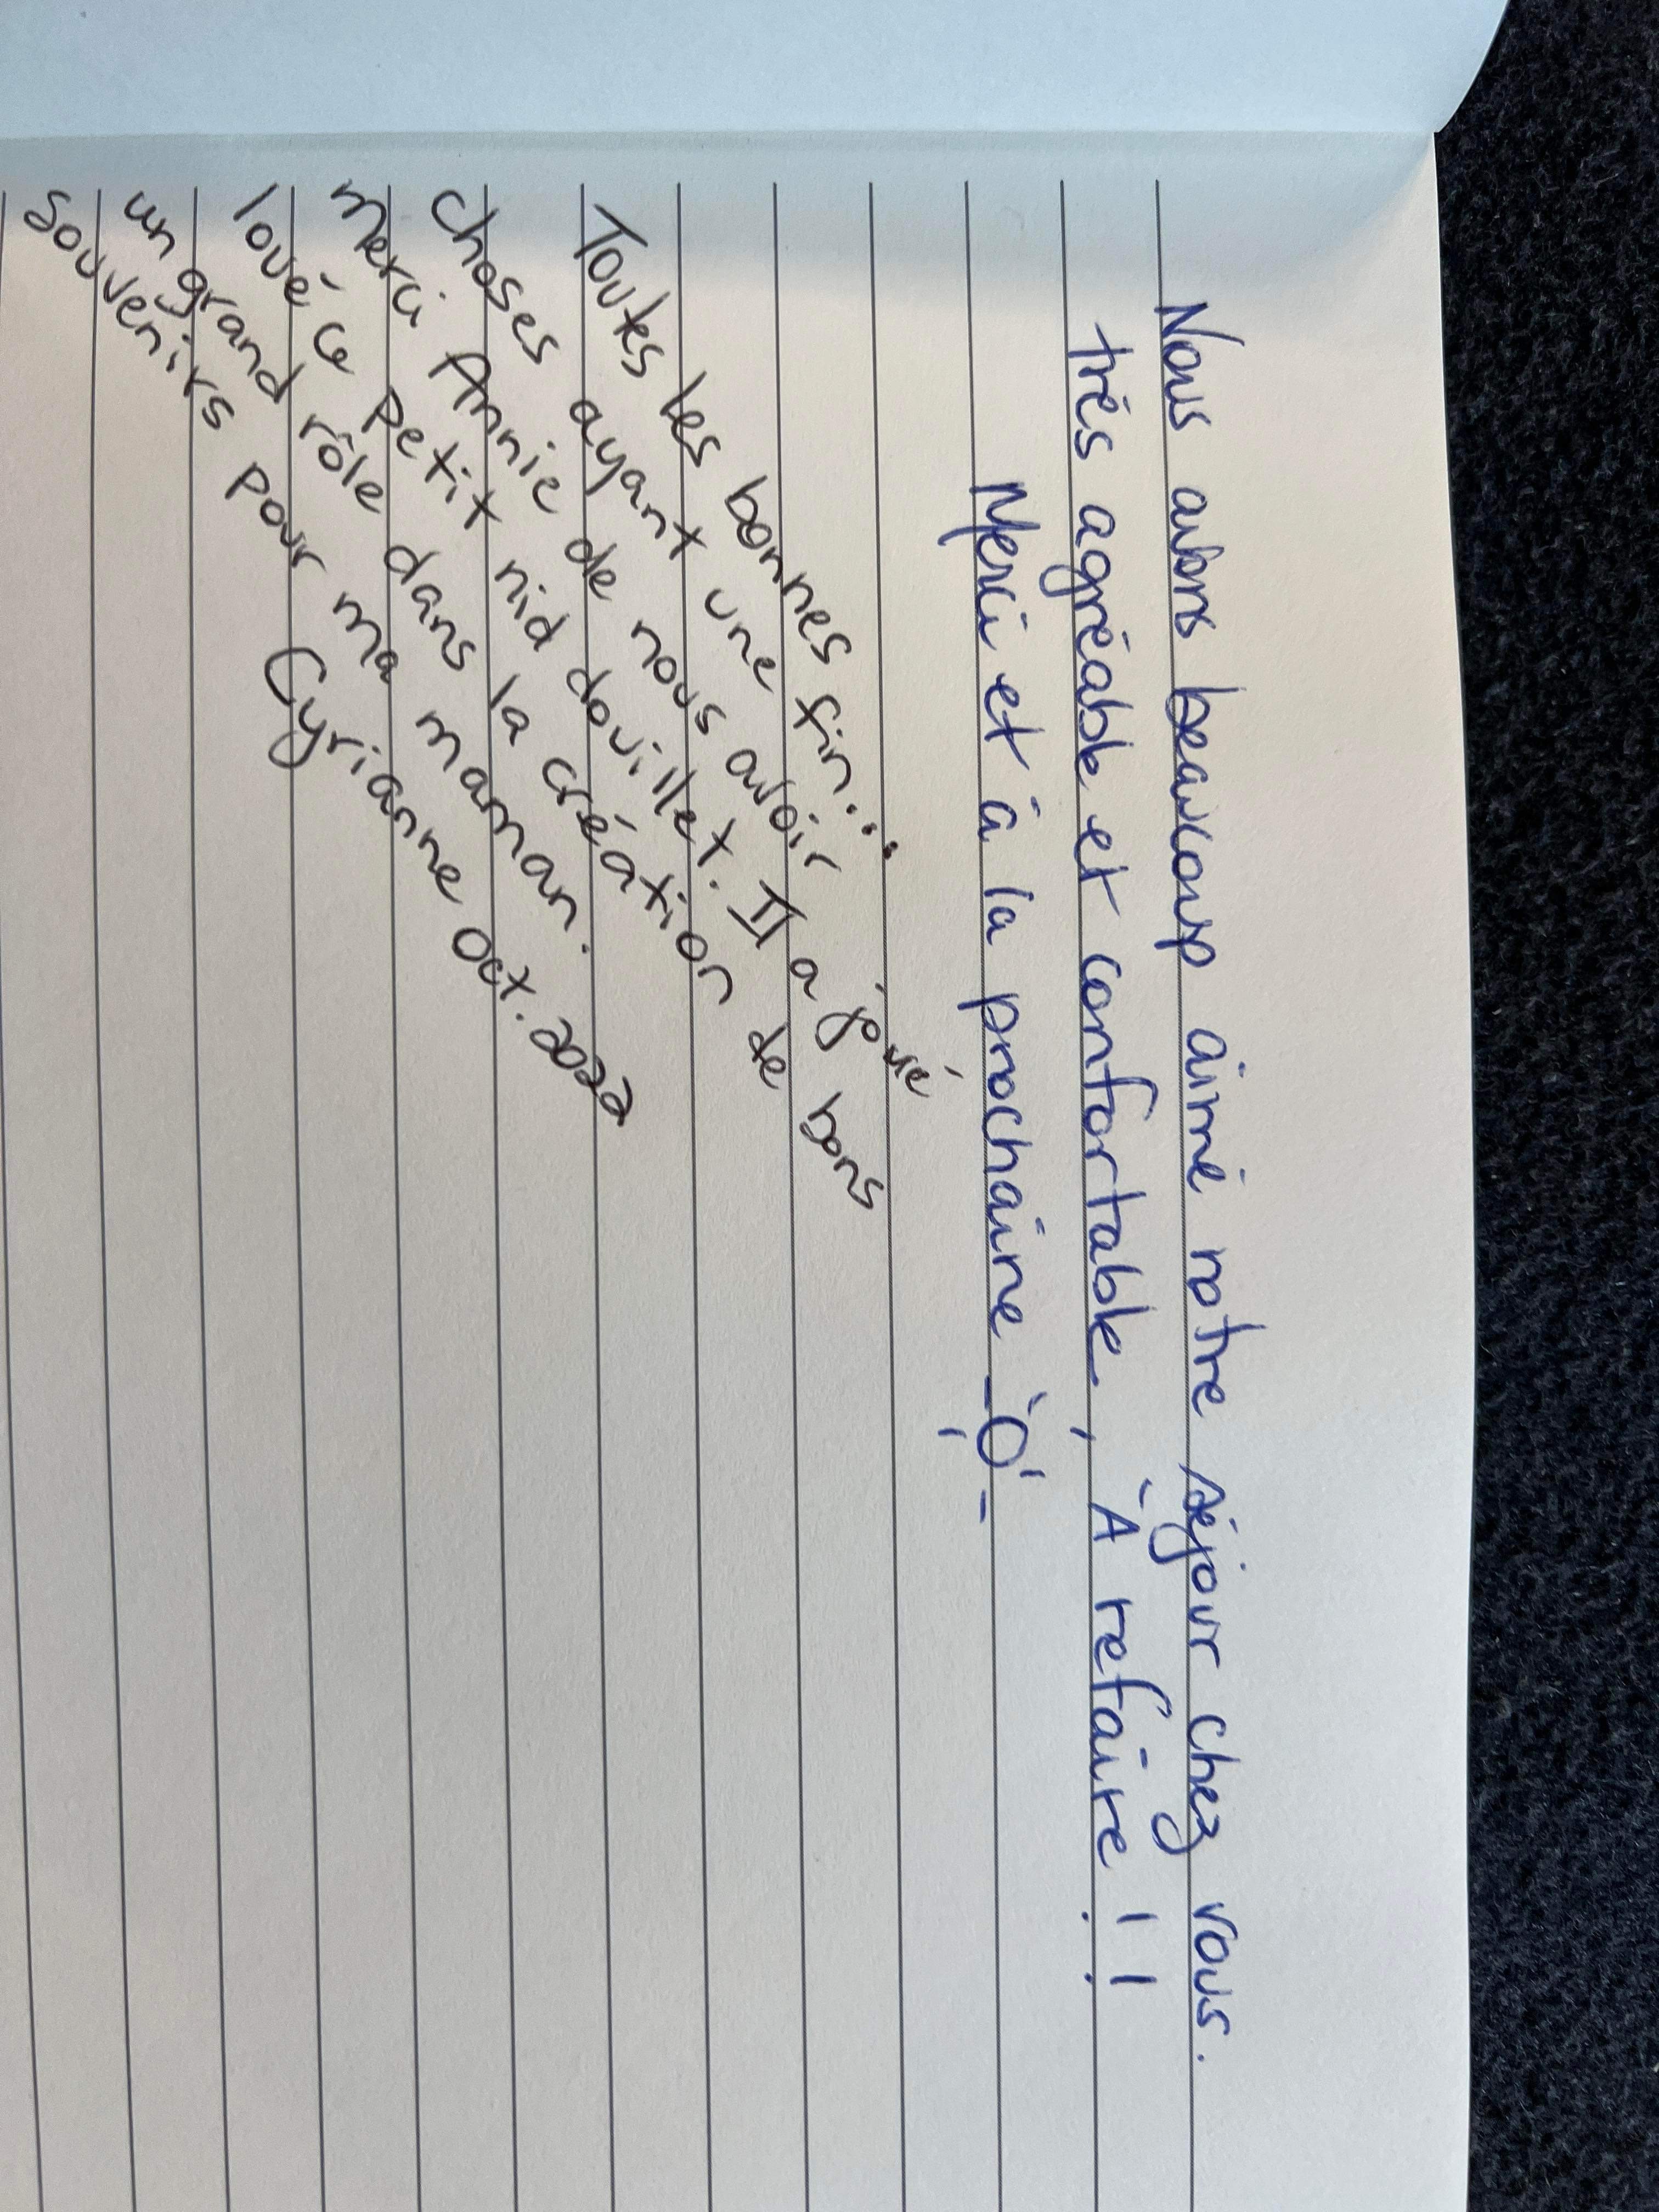 Nous avons beaucoup aimé notre séjour chez vous.
très agréable et confortable, À refaire !!
Merci et à la prochaine
Toutes les bonnes
choses ayant une fin...
merci Annie de nous avoir
loué ce petit nid douillet. Il a joué
un grand rôle dans la création de bons
souvenirs pour ma maman.
Cyrianne Oct. 2022